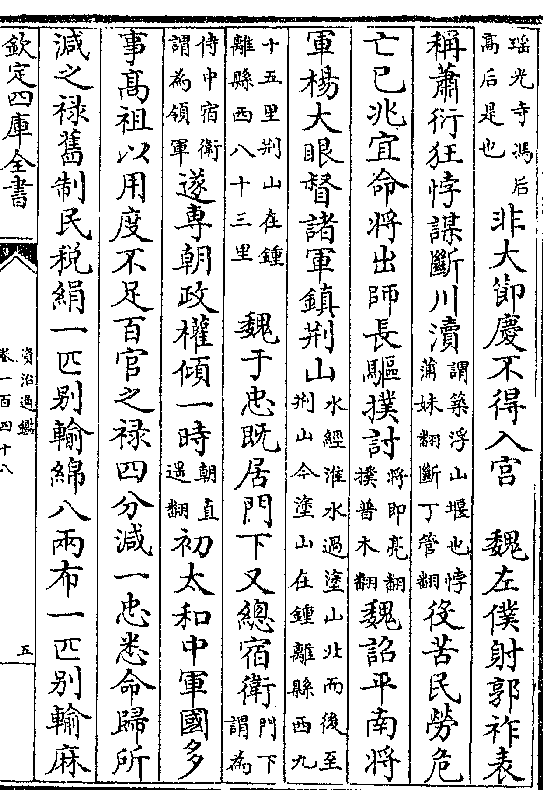 瑶光寺馮后
高后是也
非大節慶不得入宫　魏左僕射郭祚表
稱蕭衍狂悖謀斷川瀆
謂築浮山堰也悖
蒲妹翻斷丁管翻
役苦民勞危
亡已兆宜命將出師長驅撲討
將即亮翻
撲普木翻
魏詔平南將
軍楊大眼督諸軍鎮荆山
水經淮水過塗山北而後至
荆山今塗山在鍾離縣西九
十五里荆山在鍾
離縣西八十三里
魏于忠既居門下又總宿衛
門下謂為
侍中宿衛
謂為領軍
遂專朝政權傾一時
朝直
遥翻
初太和中軍國多
事髙祖以用度不足百官之禄四分減一忠悉命歸所
減之禄舊制民税絹一匹别輸綿八兩布一匹别輸麻
欽定四庫全書
資治通鑑
卷一百四十八
五